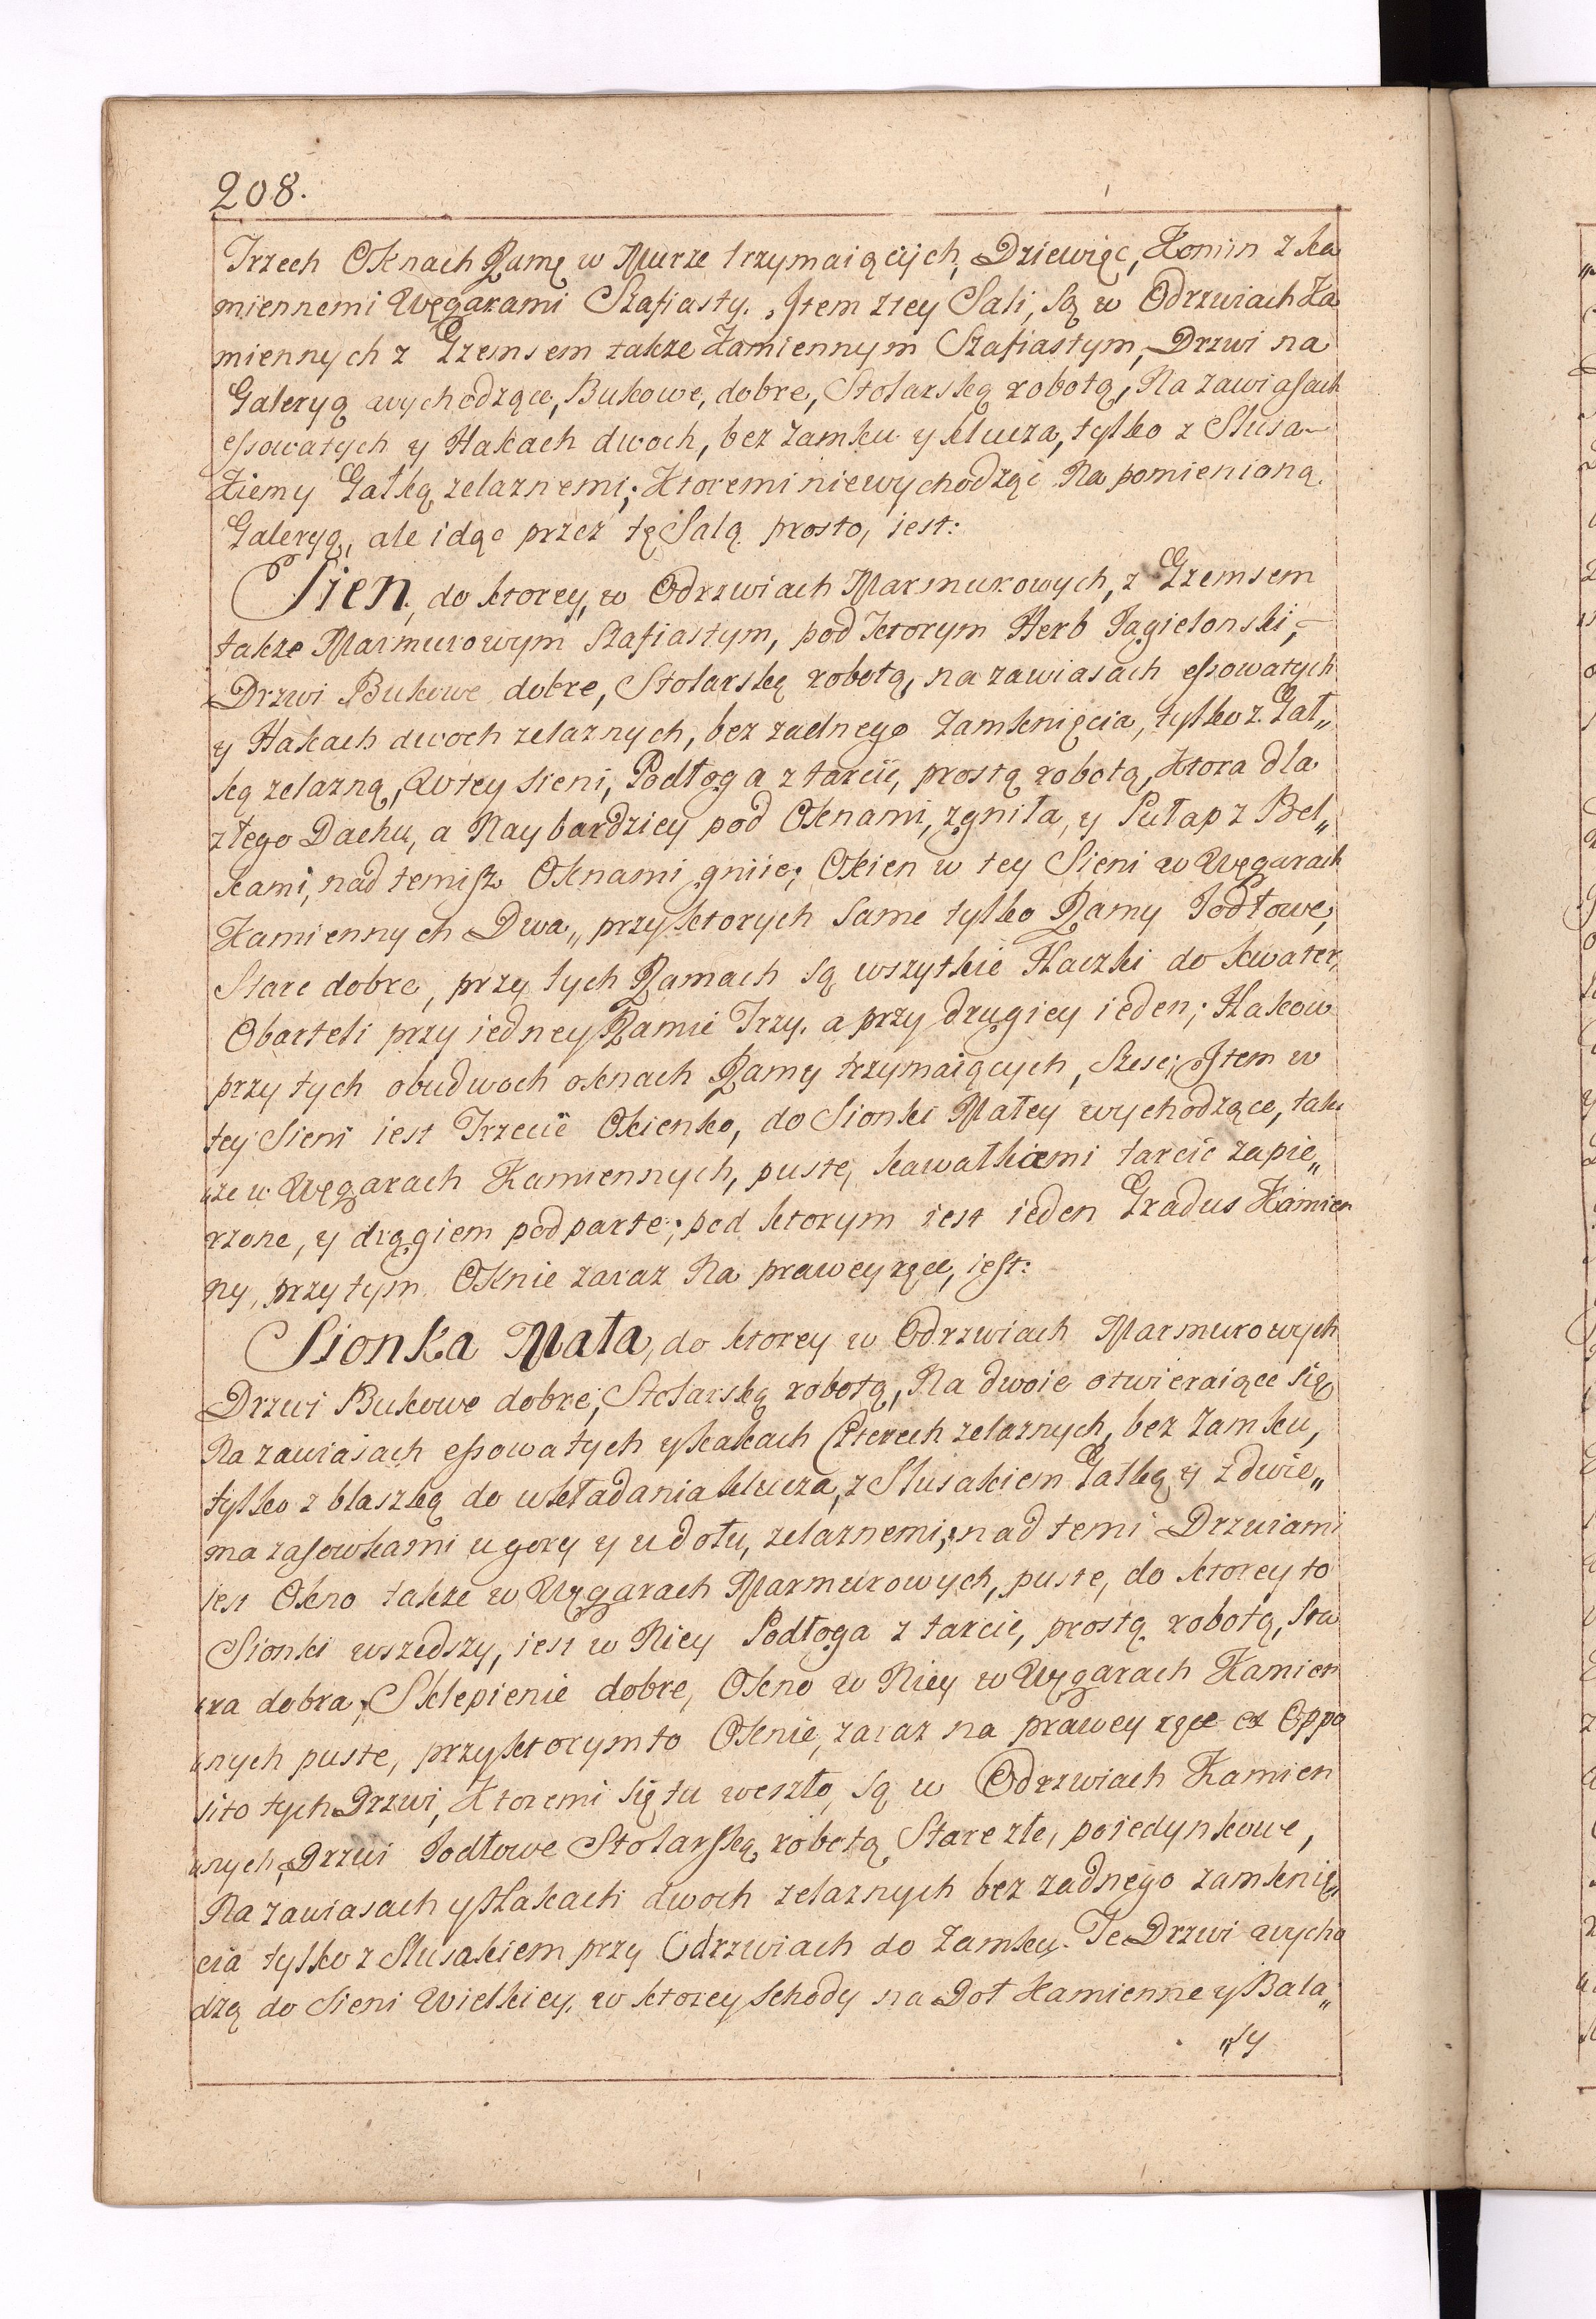 208.
Trzech Oknach Ramę w Murze trzymaiących, Dziewięc, Komin z Ka
miennemi Węgarami Szafiasty. Jtem ztey Sali, są w Odrzwiach Ka
miennych z Gzemsem takze Kamiennym Szafiastym, Drzwi na
Galeryą wychodzące, Bukowe, dobre, Stolarską robotą, Na zawiasach
essowatych y Hakach dwoch, bez zamku y klucza, tylko z Slusa-
kiemy Gałką zelaznemi; Ktoremi niewychodząc Na pomienioną
Galeryą, ale idąc przez tę Salą prosto, iest:
Sien, do ktorey, w Odrzwiach Marmurowych, z Gzemsem
takze Marmurowym Szafiastym, pod ktorym Herb Jagielonski,
Drzwi Bukowe dobre, Stolarską robotą, na zawiasach essowatych
y Hakach dwoch zelaznych, bez zadnego zamknięcia, tylko z Gał„
ką zelazną, Wtey sieni, Podłoga z tarcic, prostą robotą, Ktora dla
złego Dachu, a Naybardziey pod Oknami, zgniła, y Pułap z Bel„
kami, nad temisz Oknami gniie; Okien w tey Sieni w Węgarach
Kamiennych Dwa„ przyktorych same tylko Ramy Jodłowe,
Stare dobre, przy tych Ramach są wszytkie Haczki do kwater,
Obarteli przy iedney Ramie Trzy. a przy drugiey ieden; Hakow
przy tych obudwoch oknach Ramy trzymaiących, Szesc; Jtem w
tey Sieni iest Trzecie Okienko, do Sionki Małey wychodzące, tak
„ze w Węgarach Kamiennych, puste, kawałkami tarcic zapie„
rzone, y drągiem podparte; pod ktorym iest ieden Gradus Kamien
ny, przy tym Oknie zaraz Na prawey ręce, iest:
Sionka Mała, do ktorey w Odrzwiach Marmurowych
Drzwi Bukowe dobre, Stolarską robotą, Na dwoie otwieraiące się
Na zawiasach essowatych yhakach Czterech zelaznych, bez zamku,
tylko z blaszką do wkładania klucza, z Slusakiem Gałką y z dwie„
ma zasowkami ugory y udołu, zelaznemi, nad temi Drzwiami
iest Okno takze w Węgarach Marmurowych, puste, do ktorey to
Sionki wszedszy, iest w Niey Podłoga z tarcic, prostą robotą, sta
„ra dobra, Sklepienie dobre, Okno w Niey w Węgarach Kamien
„nych puste, przyktorymto Oknie, zaraz na prawey ręce ex Oppo
sito tych Drzwi, Ktoremi się tu weszło, są w Odrzwiach Kamien
„nych, Drzwi Jodłowe Stolarską robotą Stare złe, poiedynkowe,
Na zawiasach y Hakach dwoch zelaznych bez zadnego zamknię„
cia tylko z Slusakiem przy Odrzwiach do Zamku. Te Drzwi wycho
dzą do Sieni Wielkiey, w ktorey schody na Doł Kamienne y Bala„